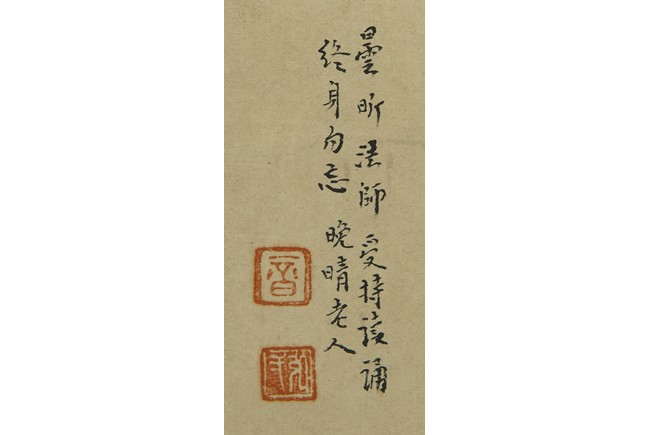 曇昕法師受持讀誦
終身勿忘 晚晴老人
音